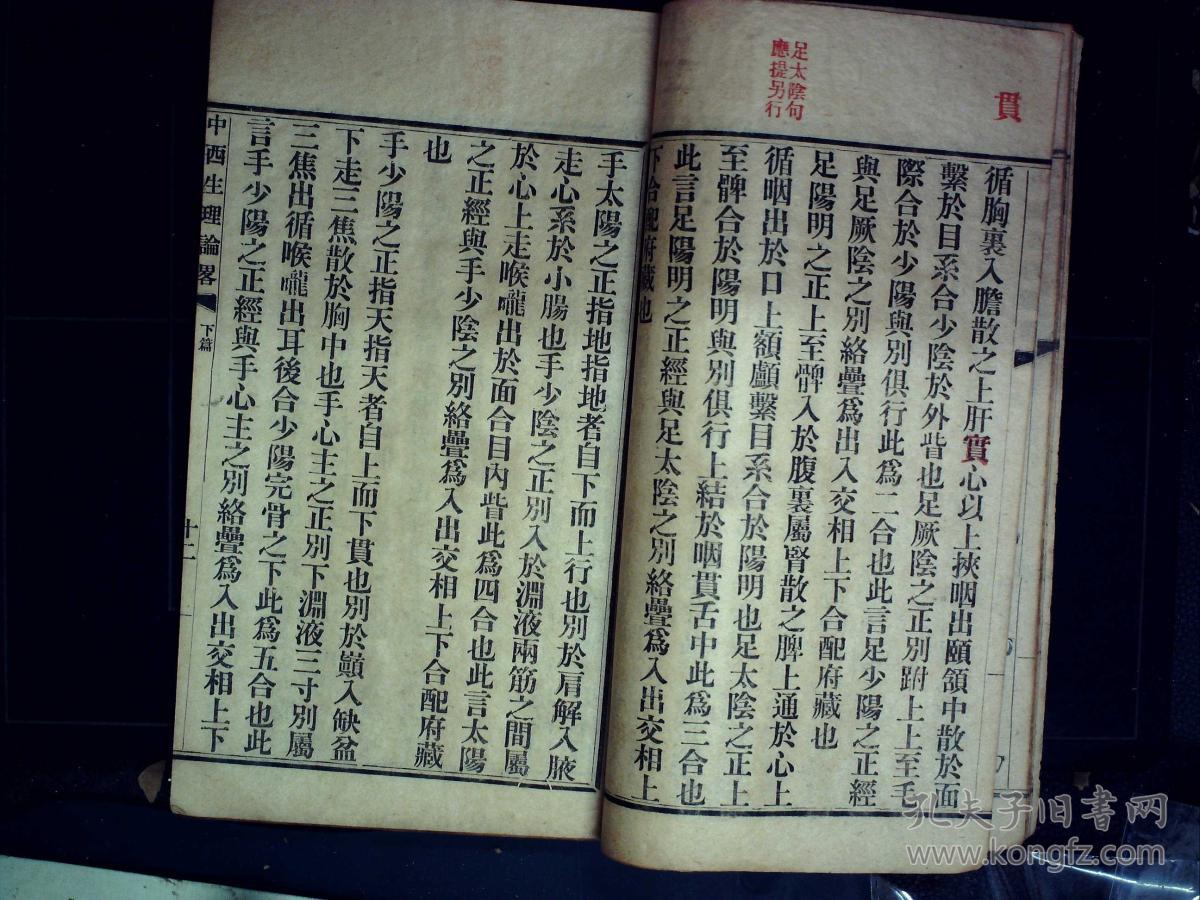 貫
足太陰句
應提另行
循胸裏入膽散之上肝實心以上挾咽出頤頷中散於面
繫於目系合少陰於外眥也足厥陰之正別跗上上至毛
際合於少陽與別俱行此爲二合也此言足少陽之正經
與足厥陰之別絡疊爲出入交相上下合配府藏也
足陽明之正上至髀入於腹裏屬腎散之脾上通於心上
循咽出於口上額顱繫目系合於陽明也足太陰之正上
至髀合於陽明與別俱行上結於咽貫舌中此爲三合也
此言足陽明之正經與足太陰之別絡疊爲入出交相上
下合配府藏也
手太陽之正指地指地者自下而上行也別於肩解入腋
走心系於小腸也手少陰之正別入於淵液兩筋之間屬
於心上走喉嚨出於面合目內眥此爲四合也此言太陽
之正經與手少陰之別絡疊爲入出交相上下合配府藏
也
手少陽之正指天指天者自上而下貫也別於巔入缺盆
下走三焦散於胸中也手心主之正別下淵液三寸別屬
三焦出循喉嚨出耳後合少陽完骨之下此爲五合也此
言手少陽之正經與手心主之別絡疊爲入出交相上下
中西生理論畧
下篇
十二
孔夫子旧书网
www.kongfz.com